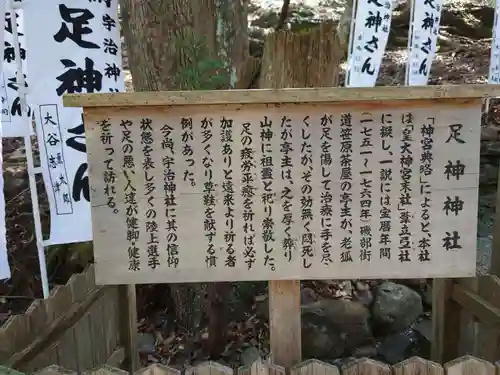 足神神社
「神宮典略」によると、本社
は「皇大神宮末社」葦立弖社
に擬し、一説には宝暦年間
（一七五一〜一七六四年）磯部街
道笹原茶屋の亭主が、老狐
が足を傷して治療に手を尽
くしたが、その効無く悶死し
たが亭主は、之を厚く葬り
山神に祖霊と祀り崇敬した。
足の疲労平癒を祈れば必ず
加護ありと遠来より祈る者
が多くなり草鞋を献ずる慣
例があった。
今尚、宇治神社に其の信仰
状態を表し多くの陸上選手
や足の悪い人達が健脚・健康
を祈って訪れる。
足神さん
宇治神社
大谷
足神さん
足神さん